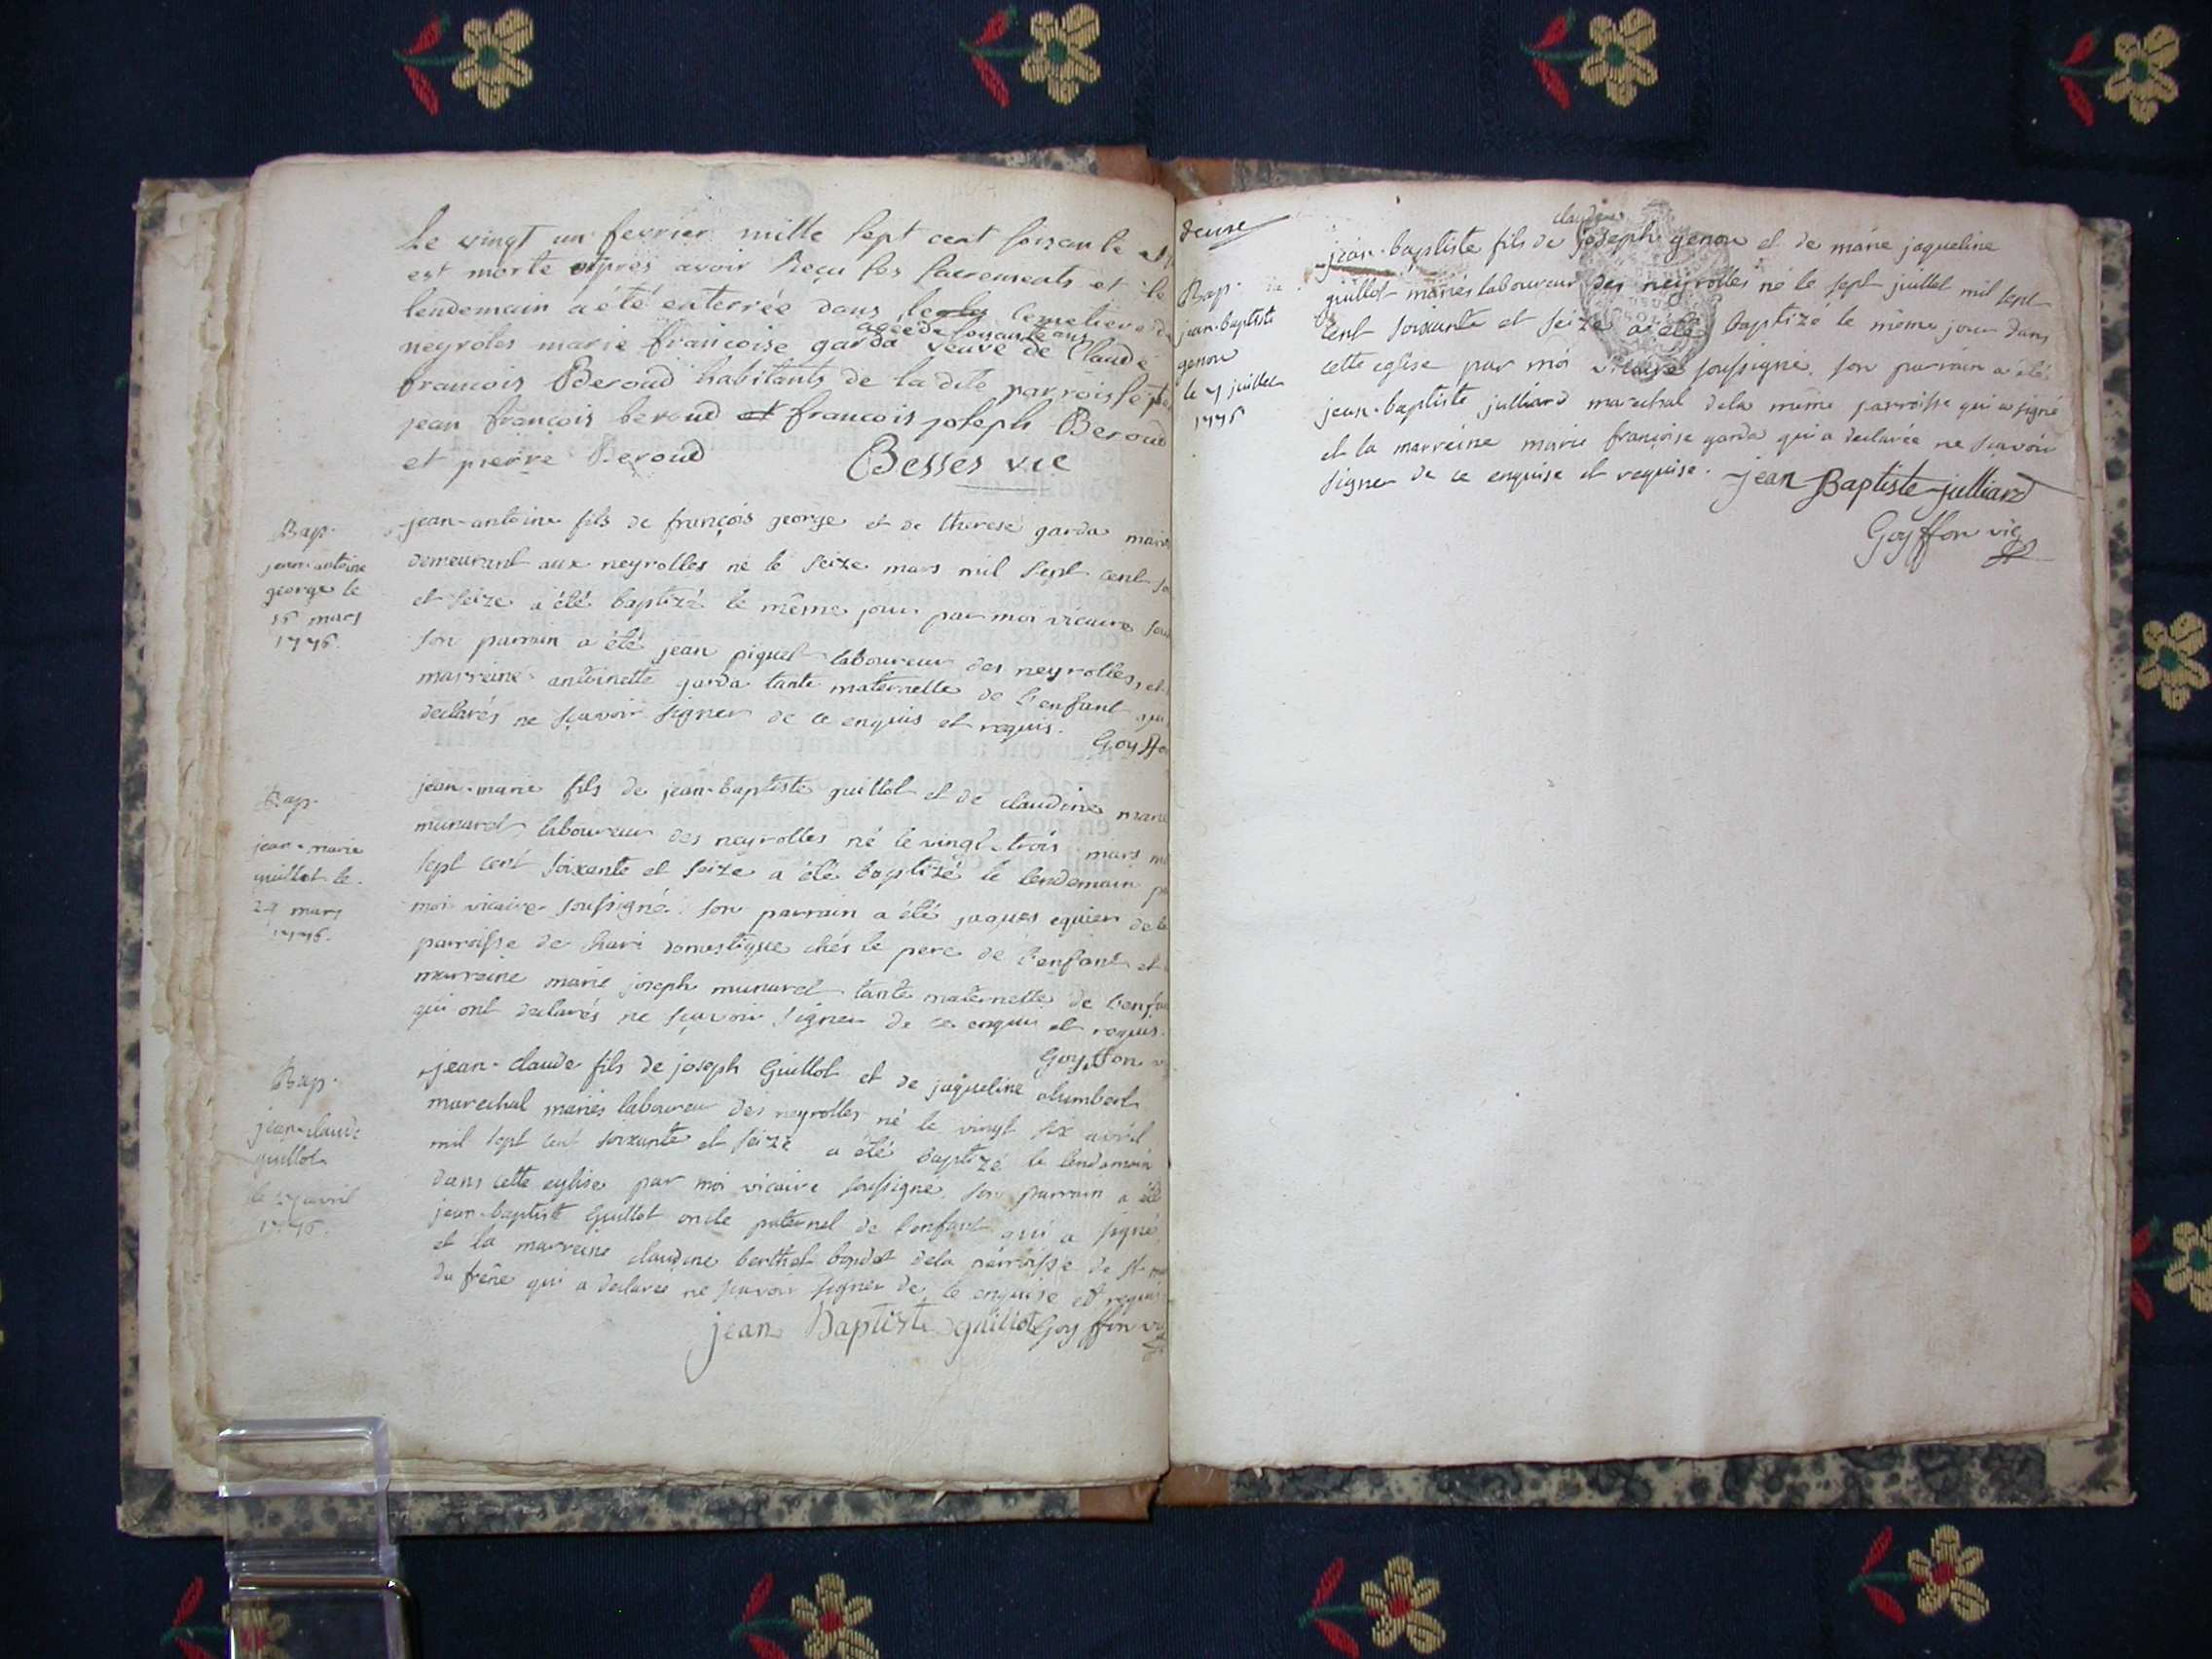 le vingt un fevrier mille sept cent soixante et
est morte après avoir reçu les sacrements et le
lendemain a été enterrée dans le cemetiere de
agée de soixante ans
neyroles marie francoise garda veuve de Claude
francois Beroud habitants de la dite parroisse
jean françois beroud et francois joseph Beroud
et pierre Beroud Besses vic
Bap.
jean-antoine
george le
16 mars
1776.
jean-antoine fils de françois george et de therese garda
demeurant aux neyrolles né le seize mars mil sept cent
et seize a été baptizé le même jour par moi vicaire
son parrain a été jean piquet laboureur des neyrolles, et
marreine antoinette garda tante maternelle de l'enfant
declarés ne sçavoir signer de ce enquis et requis. Goyffon
Bap.
jean-marie
guillot le
24 mars
1776.
jean-marie fils de jean-baptiste guillot et de claudine marie
munaret laboureur des neyrolles né le vingt-trois mars
sept cent soixante et seize a été baptizé le lendemain
moi vicaire soussigné. son parrain a été jaques equier de la
parroisse de domestique chés le pere de l'enfant et
marreine marie joseph munaret tante maternelle de l'enfant
qui ont declarés ne sçavoir signer de ce enquis et requis.
Goyffon
Bap.
jean-claude
guillot
le 27 avril
1776.
jean-claude fils de joseph Guillot et de jaqueline
marechal mariés laboureur des neyrolles né le vingt six avril
mil sept cent soixante et seize a été baptizé le lendemain
dans cette eglise par moi vicaire soussigné. son parrain a été
jean-baptiste Guillot oncle paternel de l'enfant qui a signé
et la marreine claudine berthet de la parroisse de st
du frêne qui a declarée ne sçavoir signer de ce enquise et requise
jean Baptiste guillot Goyffon vic
deuxe
Bap.
jean-baptiste
genou
le 7 juillet
1776
claudine
jean-baptiste fils de joseph genou et de marie jaqueline
guillot mariés laboureur des neyrolles né le sept juillet mil sept
cent soixante et seize a été baptizé le même jour dans
cette eglise par moi vicaire soussigné. son parrain a été
jean-baptiste julliard marechal de la même parroisse qui a signé
et la marreine marie françoise garda qui a declarée ne sçavoir
signer de ce enquise et requise. jean Baptiste julliard
Goyffon vic